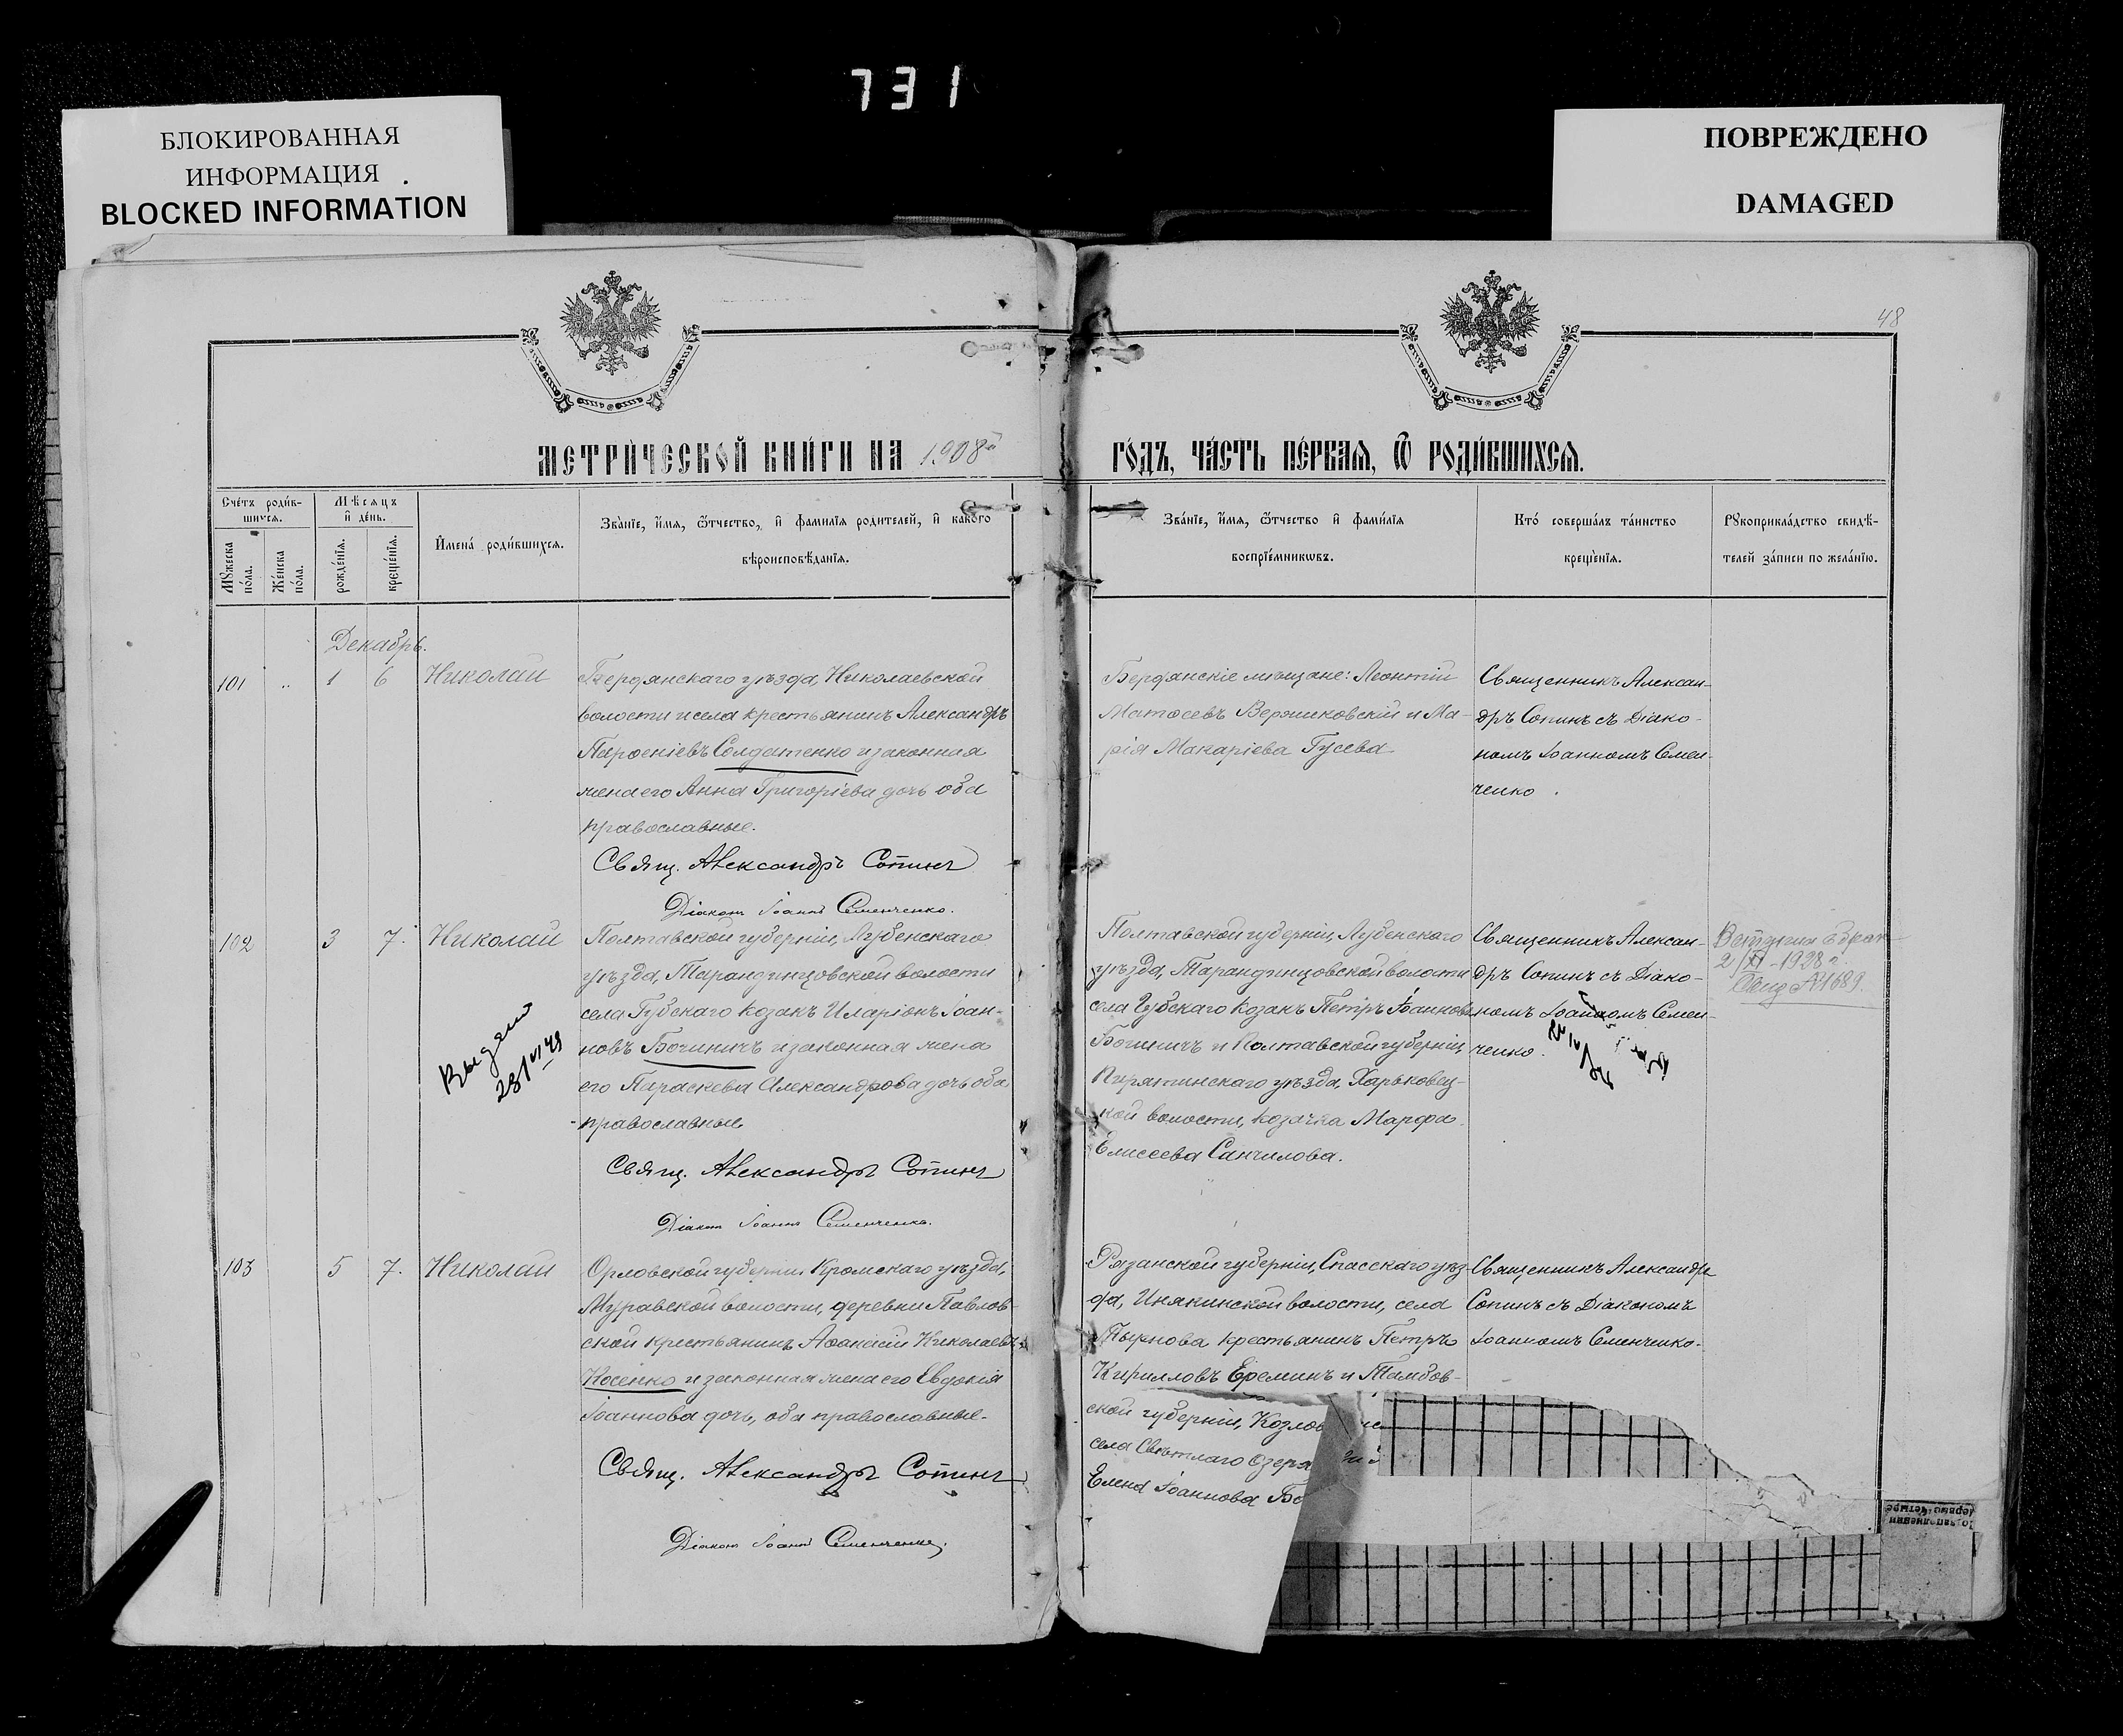 731
БЛОКИРОВАННАЯ
ИНФОРМАЦИЯ
BLOCKED INFORMATION
ПОВРЕЖДЕНО
DAMAGED
48
МЕТРИЧЕСКОЙ КНИГИ НА 1908й
ГОДЪ, ЧАСТЬ ПЕРВАЯ, Ѿ РОДИВШИХСЯ.
Счетъ родив-
шихся.
Мѣсяцъ
и день.
Мужеска
пола.
Женска
пола.
рожденія.
крещенія.
Имена родившихся.
Званіе, имя, ѿтчество, и фамилія родителей, и какого
вѣроисповѣданія.
Званіе, имя, ѿтчество и фамилія
воспріемниковъ.
Кто совершалъ таинство
крещенія.
Рукоприкладство свидѣ-
телей записи по желанію.
Декабрь.
101 " 1 6 Николай
Бердянскаго уѣзда, Николаевской
волости и села крестьянинъ Александръ
Парѳеніевъ Солдатенко и законная
жена его Анна Григоріева дочь оба
православные.
Свящ. Александръ Сопинъ
Діаконъ Іоаннъ Семенченко.
Бердянскіе мѣщане: Леонтій
Матѳеевъ Вержиковскій и Ма-
рія Макаріева Гусева
Священникъ Алексан-
дръ Сопинъ съ Діако-
номъ Іоанномъ Семен-
ченко.
102 3 7. Николай
Полтавской губерніи, Лубенскаго
уѣзда, Тарандинцовской волости
села Губскаго козакъ Иларіонъ Іоан-
новъ Богиничъ и законная жена
его Параскева Александрова дочь оба
православные
Свящ. Александръ Сопинъ
Діаконъ Іоаннъ Семенченко.
Выдано
28/VI 49
Полтавской губерніи, Лубенскаго
уѣзда, Тарандинцовской волости
села Губскаго козакъ Петръ Іоанновъ
Богиничъ и Полтавской губерніи,
Пирятинскаго уѣзда, Харьковец-
кой волости, козачка Марфа
Елисеева Санчилова.
Священникъ Алексан-
дръ Сопинъ съ Діако-
номъ Іоанномъ Семен-
ченко.
2/XI-1928 г.
№1689.
103 5 7. Николай
Орловской губерніи Кромскаго уѣзда,
Муравской волости, деревни Павлов-
ской крестьянинъ Аѳанасій Николаевъ
Косенко и законная жена его Евдокія
Іоаннова дочь, оба православные.
Свящ. Александръ Сопинъ
Діаконъ Іоаннъ Семенченко.
Рязанской губерніи, Спасскаго уѣз-
да, Инякинской волости, села
Тырнова крестьянинъ Петръ
Кирилловъ Ереминъ и Тамбов-
ской губерніи, Козлов
села Свѣтлаго Озера
Елена Іоаннова Бо
Священникъ Александръ
Сопинъ съ Діакономъ
Іоанномъ Семенченко.